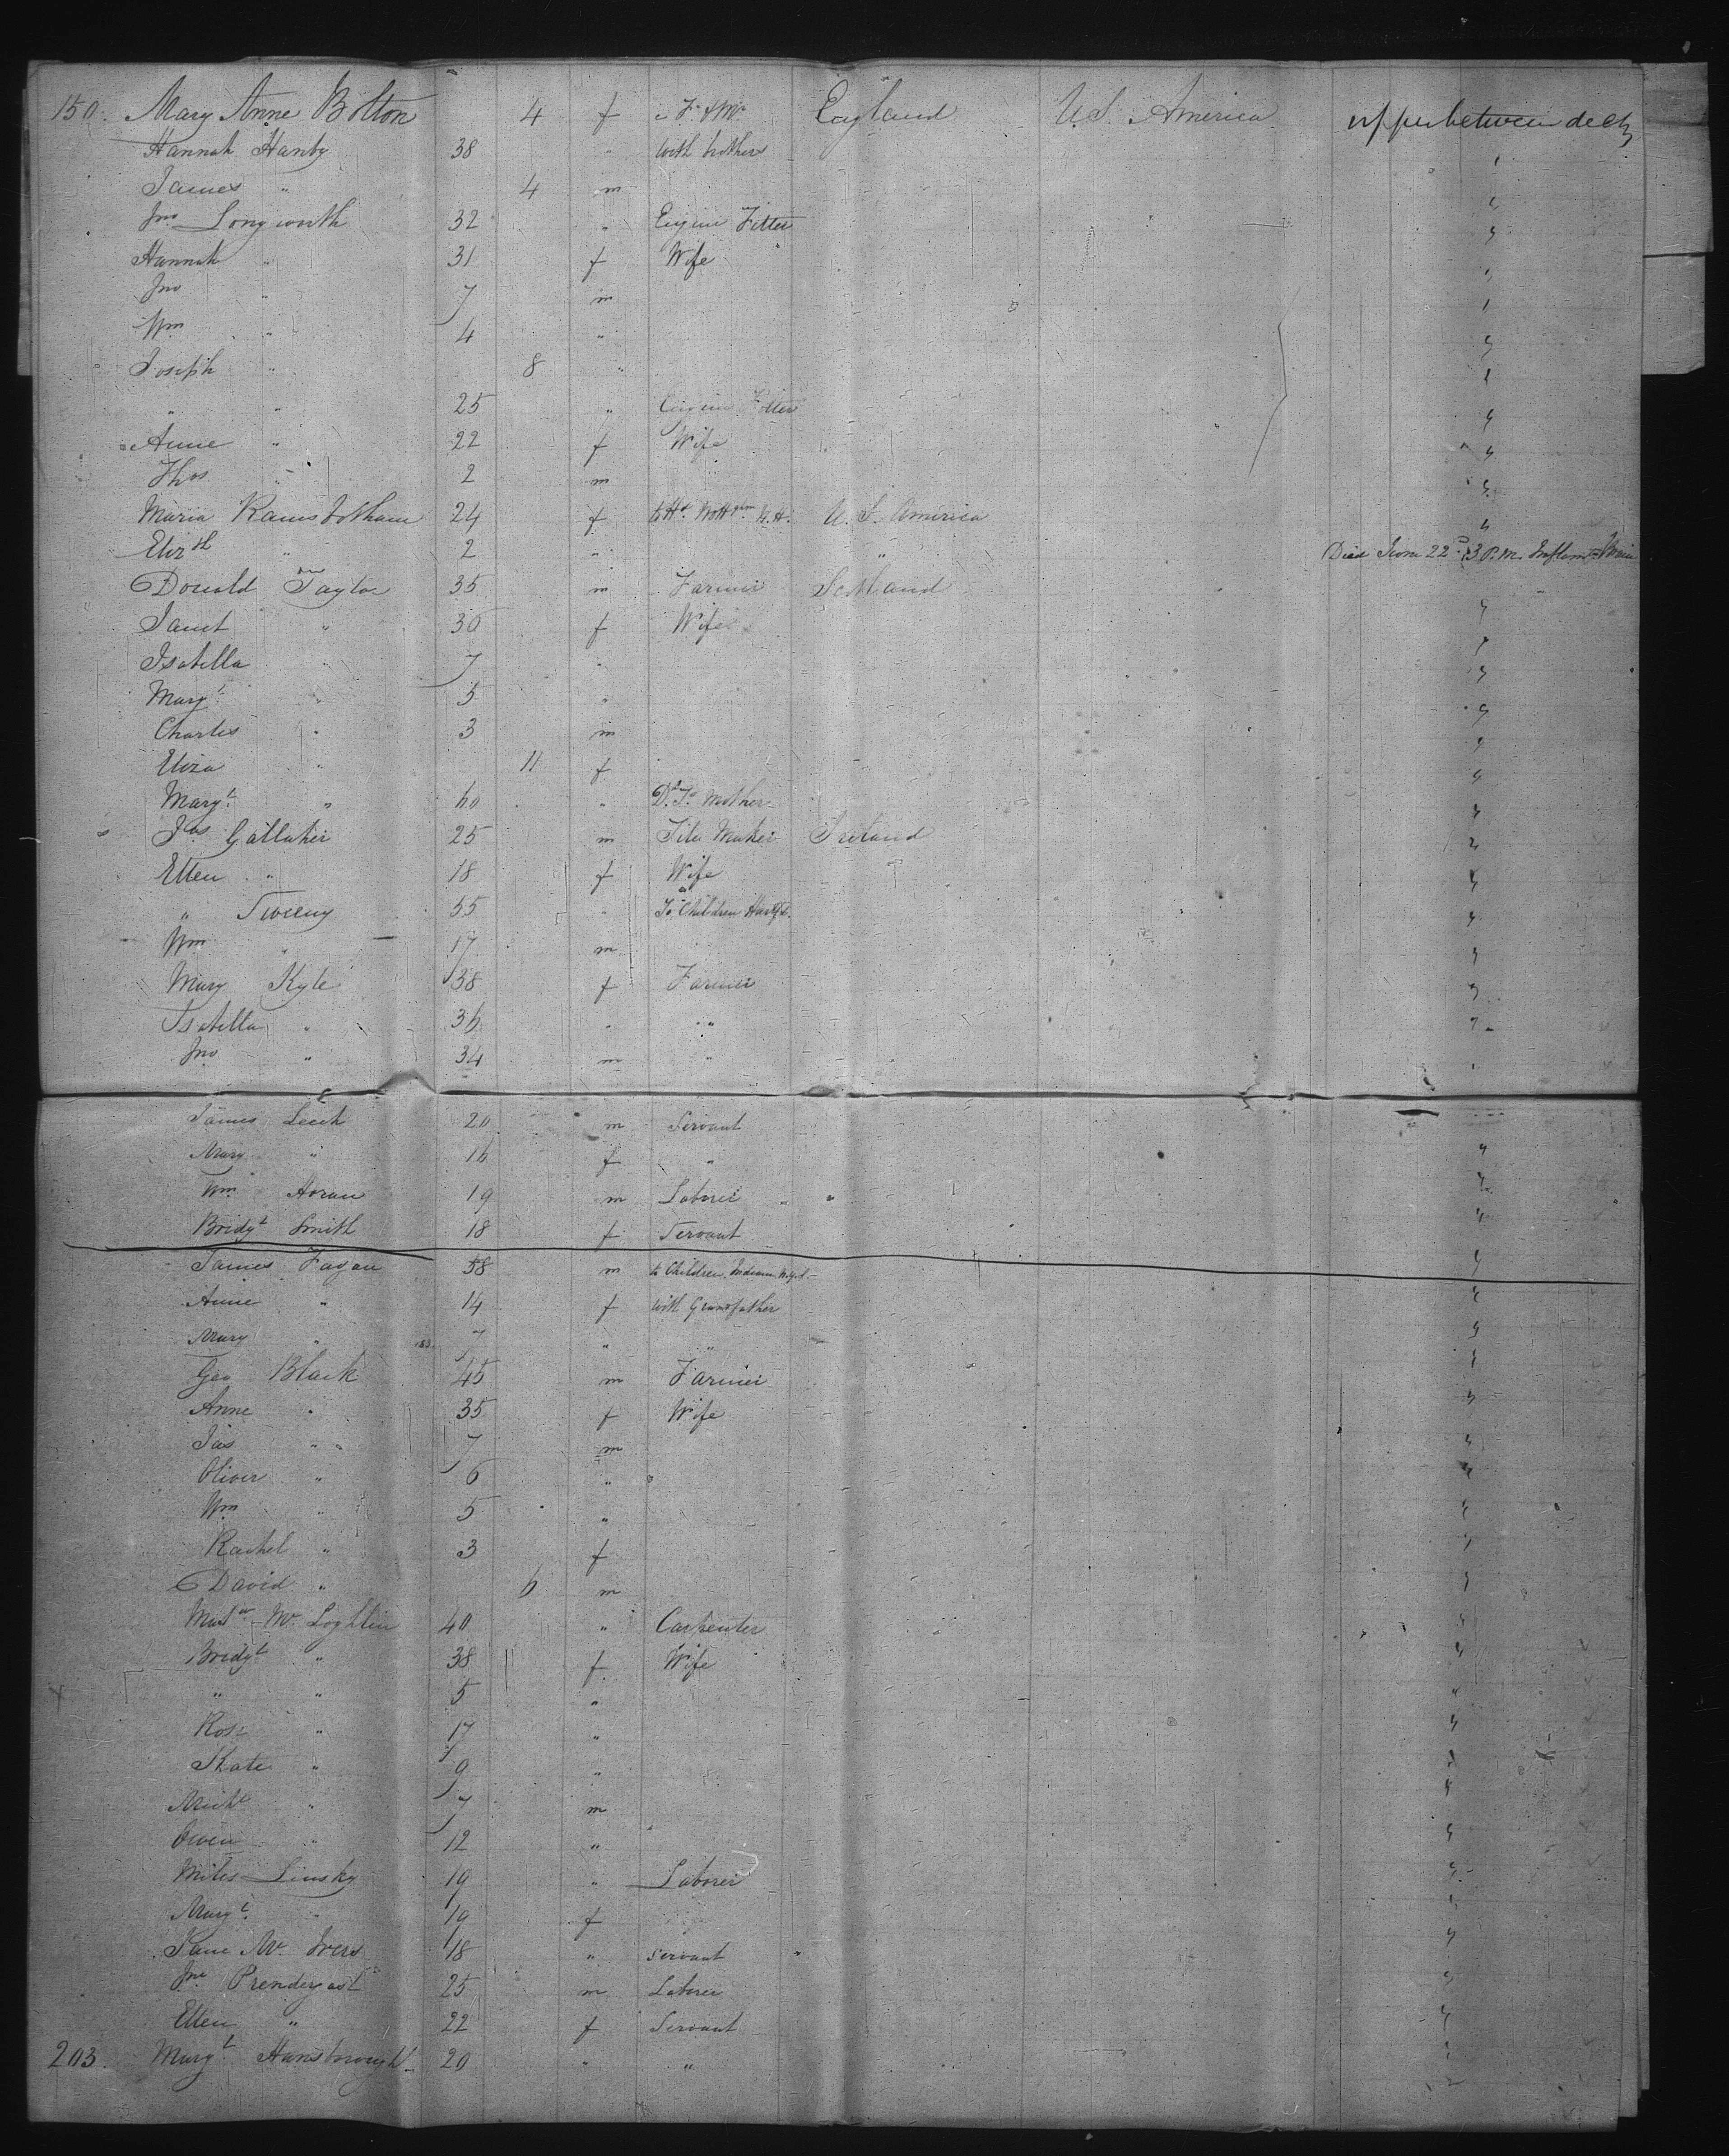 150. Mary Anne Bolton 4 f " F. & M. England U.S. America upper between decks
Hannah Hanby 38 " with brothers "
James " 4 m "
Jno Longworth 32 " Engine Fitter "
Hannah " 31 f Wife "
Jno " 7 m "
Wm " 4 " "
Joseph " 8 " "
" " 25 " Engine Fitter "
Anne " 22 f Wife "
Thos " 2 m "
Maria Ramsbotham 24 f to Hd U.S. America "
Elizth " 2 " " Died June 22d 3 P.M. Inflamn Brain
Donald Taylor 35 m Farmer Scotland "
Janet " 30 f Wife "
Isabella " 7 " "
Margt " 5 " "
Charles " 3 m "
Eliza " 11 f "
Margt " 60 " D. T.s Mother "
Jas Gallaher 25 m Tile Maker Ireland "
Ellen " 18 f Wife "
" Sweeny 55 " To Children "
Wm " 17 m "
Mary Kyle 38 f Farmer "
Isabella " 36 " " "
Jno " 34 m " "
James Leech 20 m Servant
Mary " 16 f " "
Wm Horan 19 m Laborer "
Bridgt Smith 18 f Servant "
James Fagan 58 m to Children Indiana "
Anne " 14 f with Grandfather "
Mary " 7 " " "
Geo Black 45 m Farmer "
Anne " 35 f Wife "
Jas " 7 m "
Oliver " 6 " "
Wm " 5 " "
Rachel " 3 f "
David " 6 m "
Mc Loghlin 40 " Carpenter "
Bridgt " 38 f Wife "
" " 5 " "
Rose " 17 " "
Kate " 9 " "
Michl " 7 m "
Owen " 12 " "
Miles Linsky 19 " Laborer "
Margt " 19 f "
Jane Mc Ivers 18 " Servant "
Jno Prendergast 25 m Laborer "
Ellen " 22 f Servant "
203. Margt Hansbrough 20 " " "